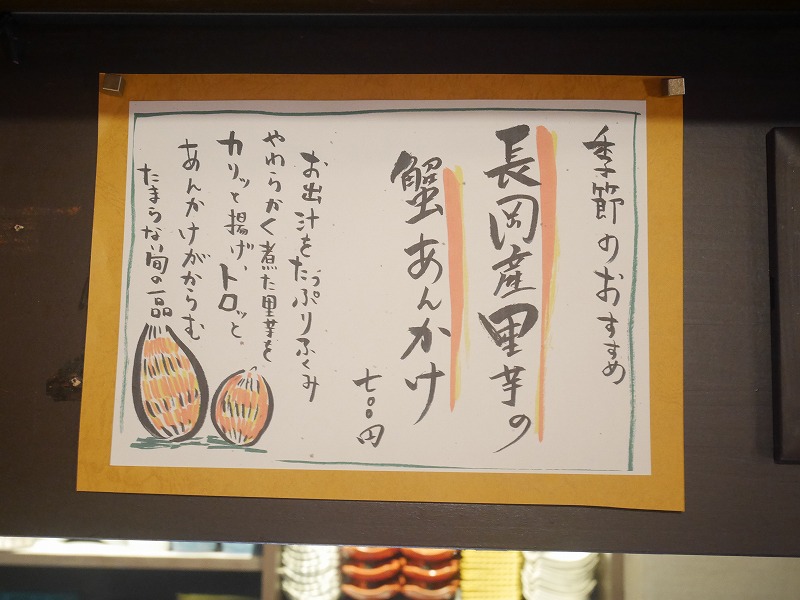 季節のおすすめ
長岡産里芋の
蟹あんかけ
七〇〇円
お出汁をたっぷりふくみ
やわらかく煮た里芋を
カリッと揚げ、トロッと
あんかけがからむ
たまらない旬の一品